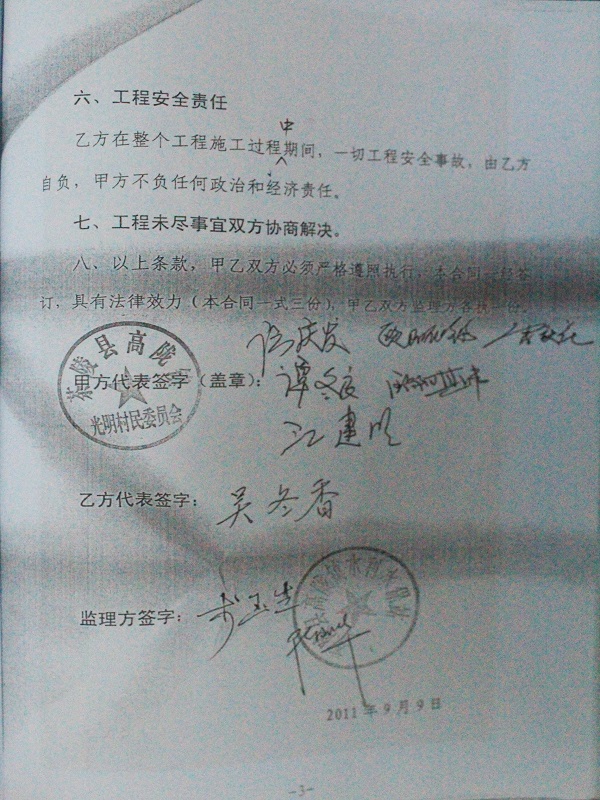 六、工程安全责任
中
乙方在整个工程施工过程期间，一切工程安全事故，由乙方
自负，甲方不负任何政治和经济责任。
七、工程未尽事宜双方协商解决。
八、以上条款，甲乙双方必须严格遵照执行，本合同一经签
订，具有法律效力（本合同一式三份），甲乙双方监理方各执一份。
茶陵县高陇
光明村民委员会
甲方代表签字（盖章）：谭冬
江建
乙方代表签字：吴冬香
监理方签字：
2011年9月9日
-3-